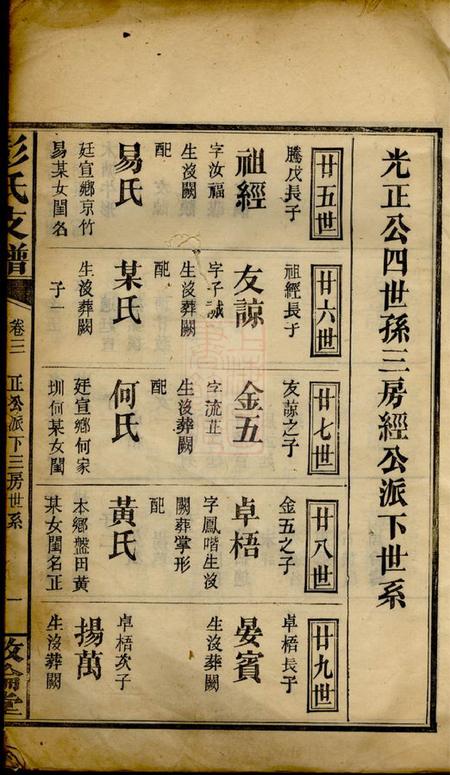 光正公四世孫三房經公派下世系
廿五世
騰戊長子
祖經
字汝福
生沒闕
配
易氏
廷宣鄉京竹
易某女閨名
廿六世
祖經長子
友諒
字子誠
生沒葬闕
配
某氏
生沒葬闕
子一
廿七世
友諒之子
金五
字流芷
生沒葬闕
配
何氏
廷宣鄉何家
圳何某女閨
廿八世
金五之子
卓梧
字鳳喈生沒
闕葬掌形
配
黃氏
本鄉盤田黃
某女閨名正
廿九世
卓梧長子
晏賓
生沒葬闕
揚萬
卓梧次子
生沒葬闕
彭氏支譜
卷三
正公派下三房世系
一
敦倫堂